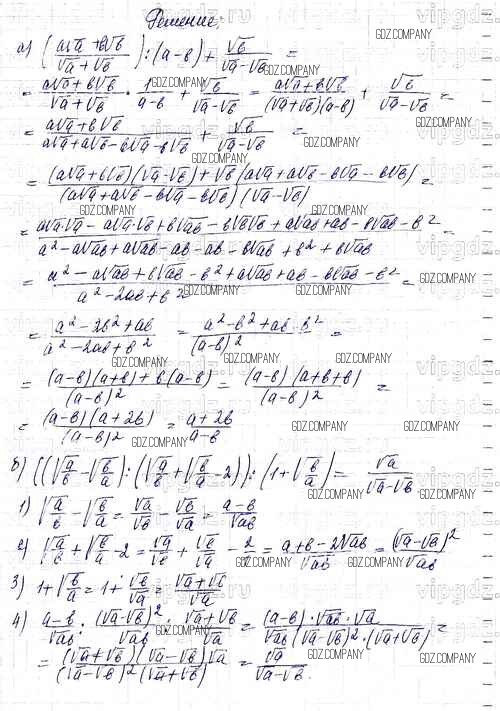 Решение:
а) ((a√a + b√b)/(√a + √b)) : (a-b) + √b/(√a-√b) =
= (a√a + b√b)/(√a + √b) · 1/(a-b) + √b/(√a-√b) = (a√a + b√b)/((√a+√b)(a-b)) + √b/(√a-√b) =
= (a√a + b√b)/(a√a + a√b - b√a - b√b) + √b/(√a-√b) =
= ((a√a + b√b)(√a-√b) + √b(a√a + a√b - b√a - b√b))/((a√a + a√b - b√a - b√b)(√a-√b)) =
= (a√a·√a - a√a·√b + b√ab - b√b√b + a√ab + ab - b√ab - b²)/(a² - a√ab + a√ab - ab - ab - b√ab + b² + b√ab) =
= (a² - a√ab + b√ab - b² + a√ab + ab - b√ab - b²)/(a² - 2ab + b²) =
= (a² - 2b² + ab)/(a² - 2ab + b²) = (a² - b² + ab - b²)/(a-b)² =
= ((a-b)(a+b) + b(a-b))/(a-b)² = ((a-b)(a+b+b))/(a-b)² =
= ((a-b)(a+2b))/(a-b)² = (a+2b)/(a-b)
б) ((√(a/b) - √(b/a)) : (√(a/b) + √(b/a) - 2)) : (1 + √(b/a)) = √a/(√a-√b)
1) √(a/b) - √(b/a) = √a/√b - √b/√a = (a-b)/√ab
2) √(a/b) + √(b/a) - 2 = √a/√b + √b/√a - 2 = (a+b-2√ab)/√ab = (√a-√b)²/√ab
3) 1 + √(b/a) = 1 + √b/√a = (√a+√b)/√a
4) (a-b)/√ab : (√a-√b)²/√ab : (√a+√b)/√a = ((a-b)·√ab·√a)/(√ab(√a-√b)²·(√a+√b)) =
= ((√a+√b)(√a-√b)√a)/((√a-√b)²(√a+√b)) = √a/(√a-√b).